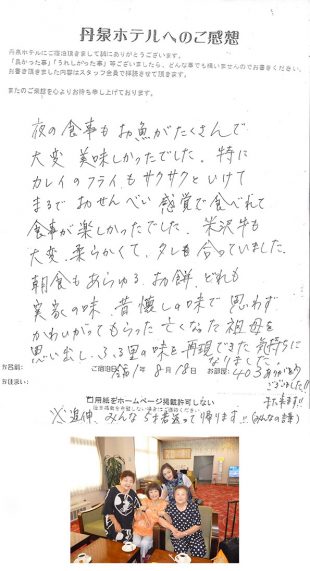 丹泉ホテルへのご感想
丹泉ホテルにご宿泊頂きまして誠にありがとうございます。
「良かった事」「うれしかった事」等ございましたら、どんな事でも構いませんのでお書きください。
お書き頂きました内容はスタッフ全員で拝読させて頂きます。
またのご来館を心よりお待ち申し上げております。
夜の食事も お魚がたくさんで
大変 美味しかったでした。特に
カレイのフライも サクサクといけて
まるで おせんべい 感覚で食べれて
食事が楽しかったでした。米沢牛も
大変、柔らかくて、タレも合っていました。
朝食もあらゆる お餅、どれも
実家の味、昔懐しの味で 思わず
かわいがってもらった 亡くなった 祖母を
思い出し、ふる里の味を再現できた 気持ちに
なりました。
お名前: ご宿泊日: 令和1年 8月18日 お部屋: 403
ありがとう
ございました!!
お住まい:
また来ます!!
用紙をホームページ掲載許可しない
みんな
帰ります!!(みんなの言葉)